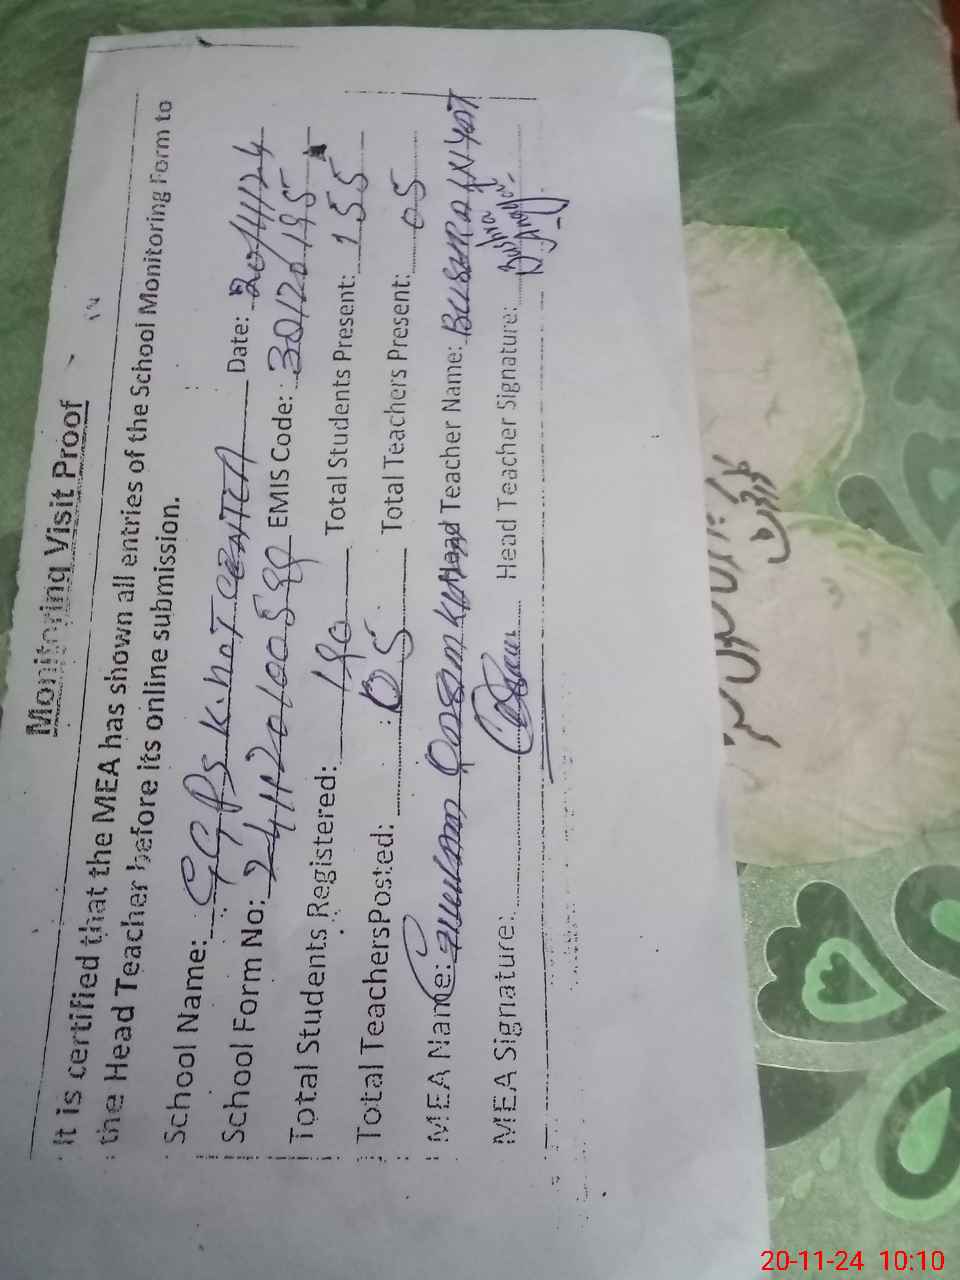 Monitoring Visit Proof
It is certified that the MEA has shown all entries of the School Monitoring Form to
the Head Teacher before its online submission.
School Name: GGPS Date: 20/11/24
School Form No: EMIS Code: 30120195
Total Students Registered: 190 Total Students Present: 155
Total TeachersPosted: 05 Total Teachers Present: 05
MEA Name: Ghulam Qasam Head Teacher Name: BUSHRA
MEA Signature: Head Teacher Signature: Bushra
20-11-24 10:10